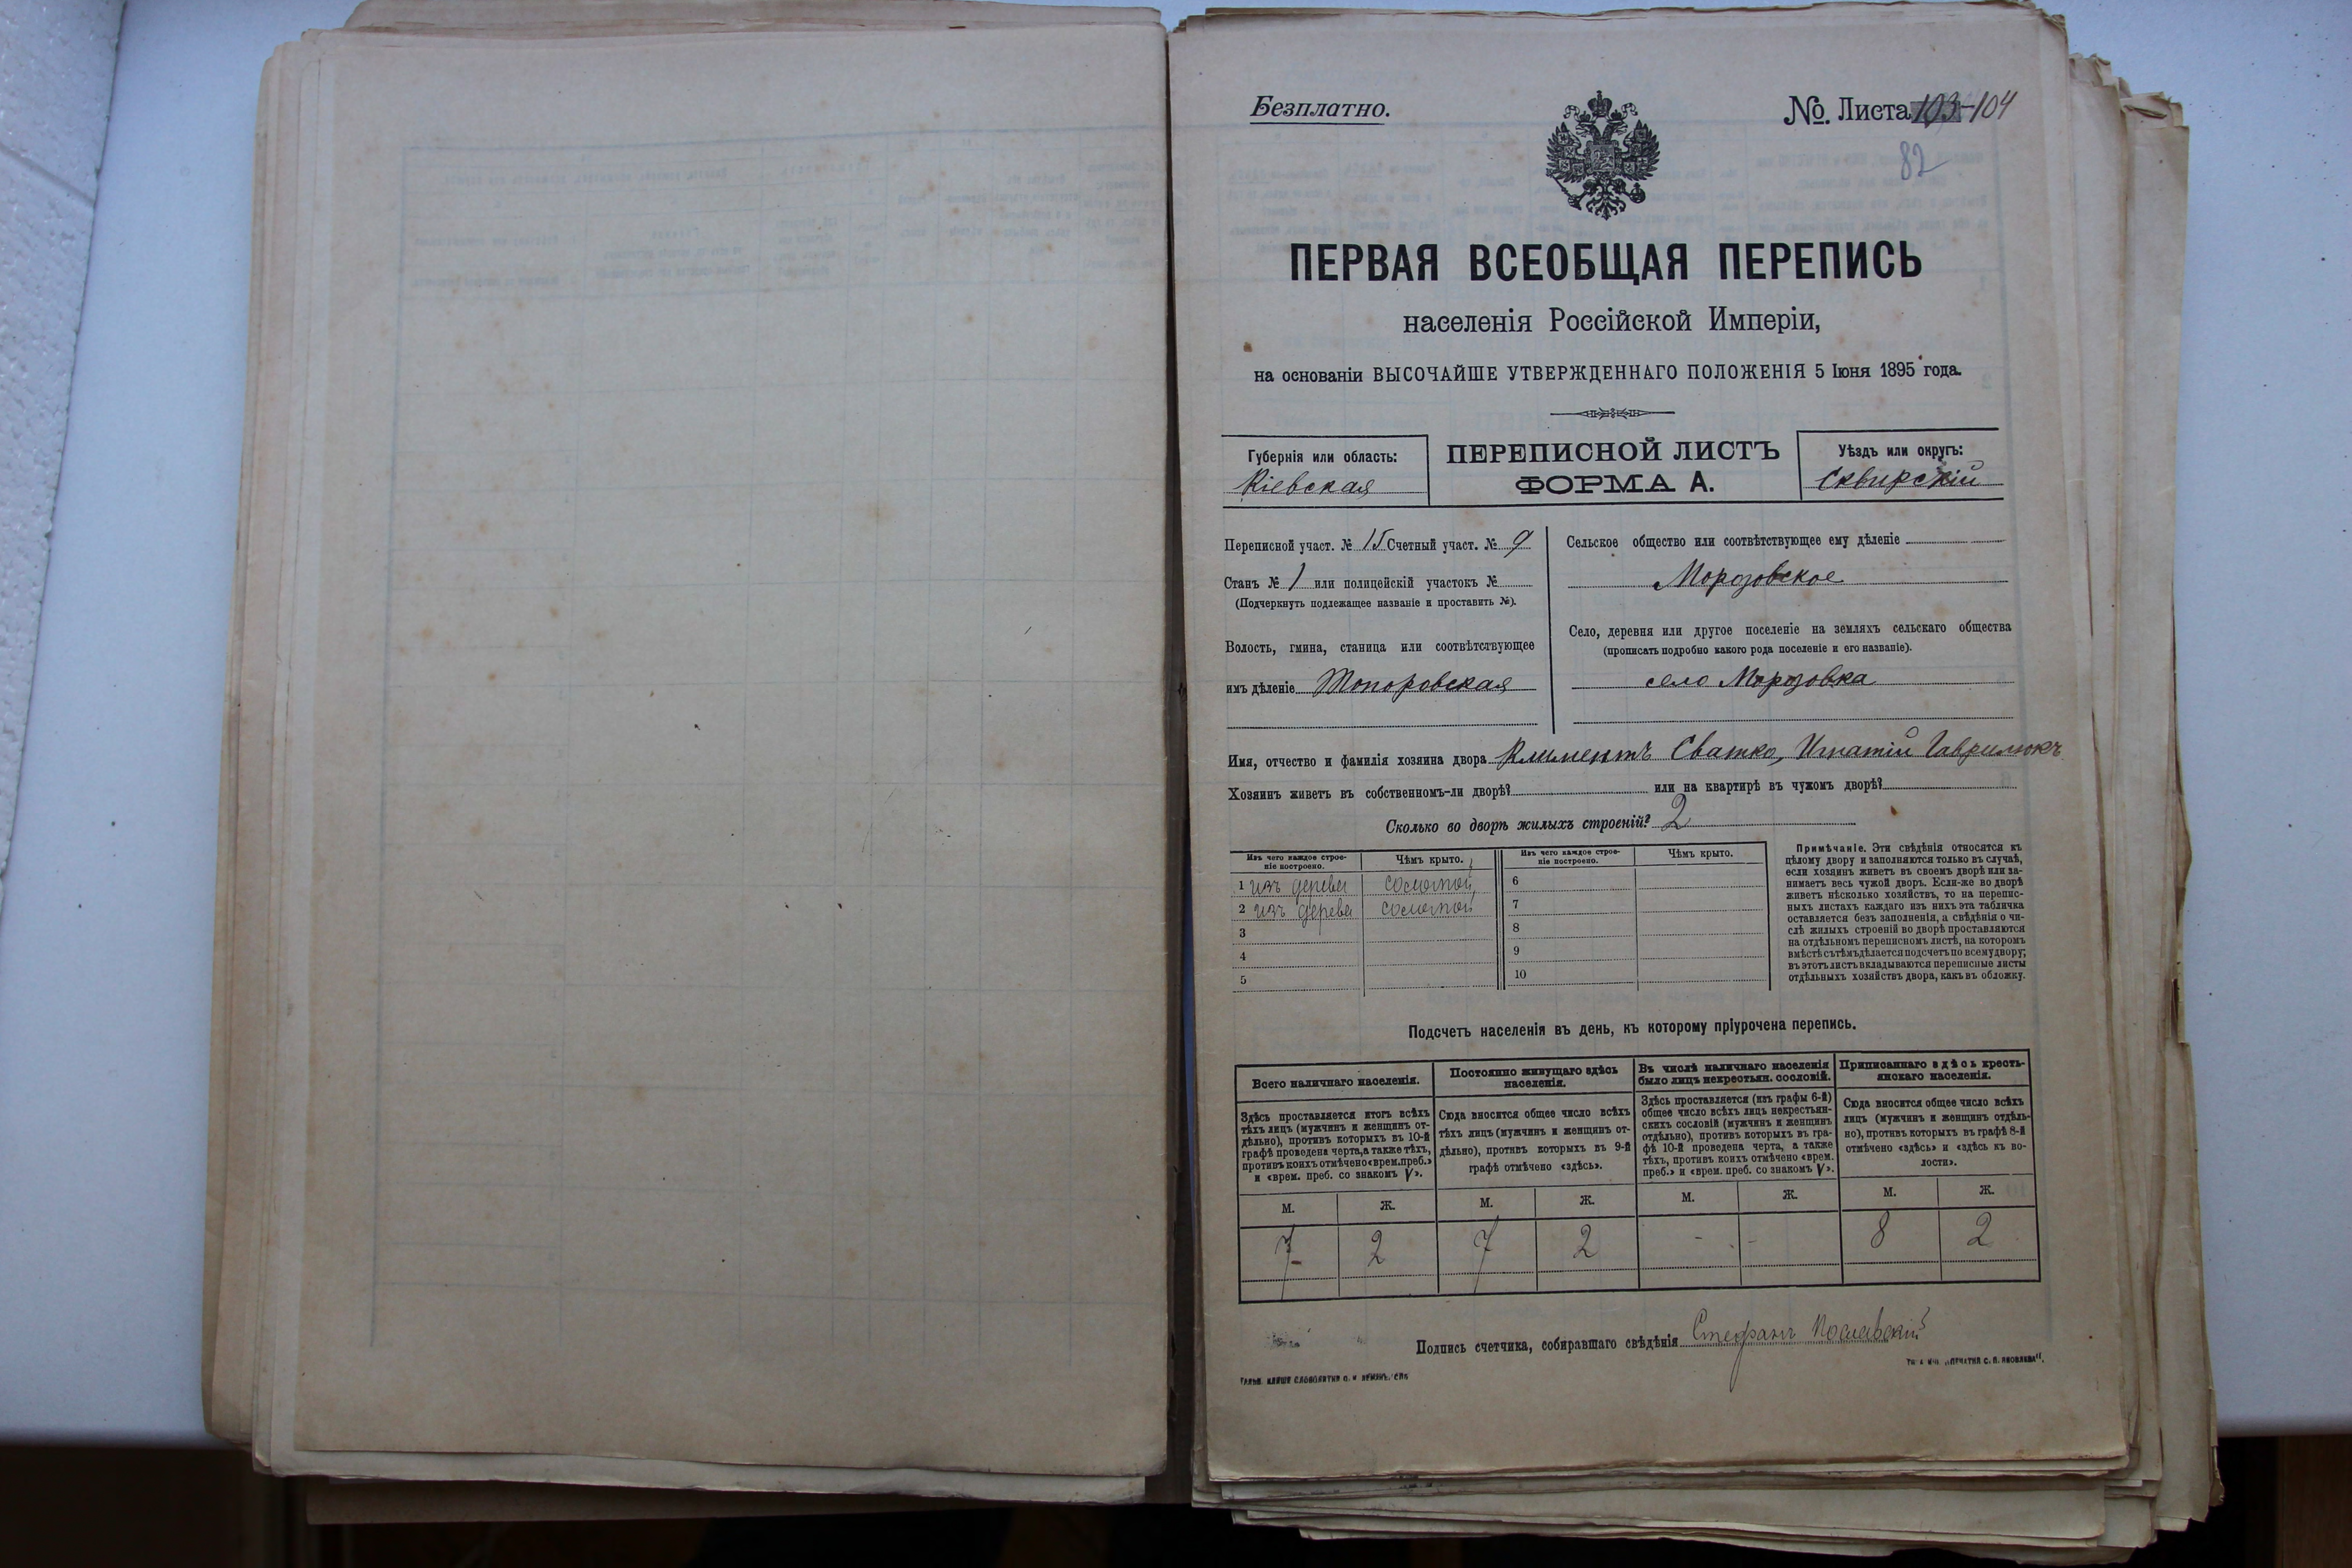 Безплатно.
№. Листа 103-104
82
ПЕРВАЯ ВСЕОБЩАЯ ПЕРЕПИСЬ
населенія Россійской Имперіи,
на основаніи ВЫСОЧАЙШЕ УТВЕРЖДЕННАГО ПОЛОЖЕНІЯ 5 Іюня 1895 года.
Губернія или область:
Кіевская
ПЕРЕПИСНОЙ ЛИСТЪ
ФОРМА А.
Уѣздъ или округъ:
Сквирскій
Переписной участ. № 15 Счетный участ. № 9
Станъ № 1 или полицейскій участокъ №
(Подчеркнуть подлежащее названіе и проставить №).
Волость, гмина, станица или соотвѣтствующее
имъ дѣленіе Топоровская
Сельское общество или соотвѣтствующее ему дѣленіе
Морозовское
Село, деревня или другое поселеніе на земляхъ сельскаго общества
(прописать подробно какого рода поселеніе и его названіе).
село Морозовка
Имя, отчество и фамилія хозяина двора Климентъ Сватко, Игнатій Гаврилюкъ
Хозяинъ живетъ въ собственномъ-ли дворѣ? или на квартирѣ въ чужомъ дворѣ?
Сколько во дворѣ жилыхъ строеній? 2
Изъ чего каждое строе-
ніе построено.
Чѣмъ крыто.
1 изъ дерева соломой
2 изъ дерева соломой
3
4
5
Изъ чего каждое строе-
ніе построено.
Чѣмъ крыто.
6
7
8
9
10
Примѣчаніе. Эти свѣдѣнія относятся къ
цѣлому двору и заполняются только въ случаѣ,
если хозяинъ живетъ въ своемъ дворѣ или за-
нимаетъ весь чужой дворъ. Если-же во дворѣ
живетъ нѣсколько хозяйствъ, то на перепис-
ныхъ листахъ каждаго изъ нихъ эта табличка
оставляется безъ заполненія, а свѣдѣнія о чи-
слѣ жилыхъ строеній во дворѣ проставляются
на отдѣльномъ переписномъ листѣ, на которомъ
вмѣстѣ съ тѣмъ дѣлается подсчетъ по всему двору;
въ этотъ листъ вкладываются переписные листы
отдѣльныхъ хозяйствъ двора, какъ въ обложку.
Подсчетъ населенія въ день, къ которому пріурочена перепись.
Всего наличнаго населенія.
Здѣсь проставляется итогъ всѣхъ
тѣхъ лицъ (мужчинъ и женщинъ от-
дѣльно), противъ которыхъ въ 10-й
графѣ проведена черта, а также тѣхъ,
противъ коихъ отмѣчено «врем. преб.»
и «врем. преб. со знакомъ V».
Постоянно живущаго здѣсь
населенія.
Сюда вносится общее число всѣхъ
тѣхъ лицъ (мужчинъ и женщинъ от-
дѣльно), противъ которыхъ въ 9-й
графѣ отмѣчено «здѣсь».
Въ числѣ наличнаго населенія
было лицъ некрестьян. сословій.
Здѣсь проставляется (изъ графы 6-й)
общее число всѣхъ лицъ некрестьян-
скихъ сословій (мужчинъ и женщинъ
отдѣльно), противъ которыхъ въ гра-
фѣ 10-й проведена черта, а также
тѣхъ, противъ коихъ отмѣчено «врем.
преб.» и «врем. преб. со знакомъ V».
Приписаннаго здѣсь кресть-
янскаго населенія.
Сюда вносится общее число всѣхъ
лицъ (мужчинъ и женщинъ отдѣль-
но), противъ которыхъ въ графѣ 8-й
отмѣчено «здѣсь» и «здѣсь къ во-
лости».
М. Ж. М. Ж. М. Ж. М. Ж.
7 2 7 2 - - 8 2
Подпись счетчика, собиравшаго свѣдѣнія Стефанъ